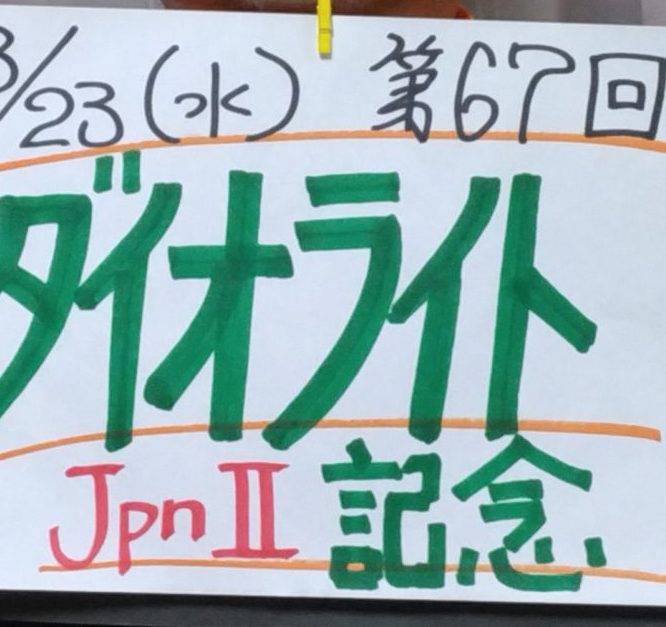 3/23(水) 第67回
ダイオライト
JpnⅡ 記念